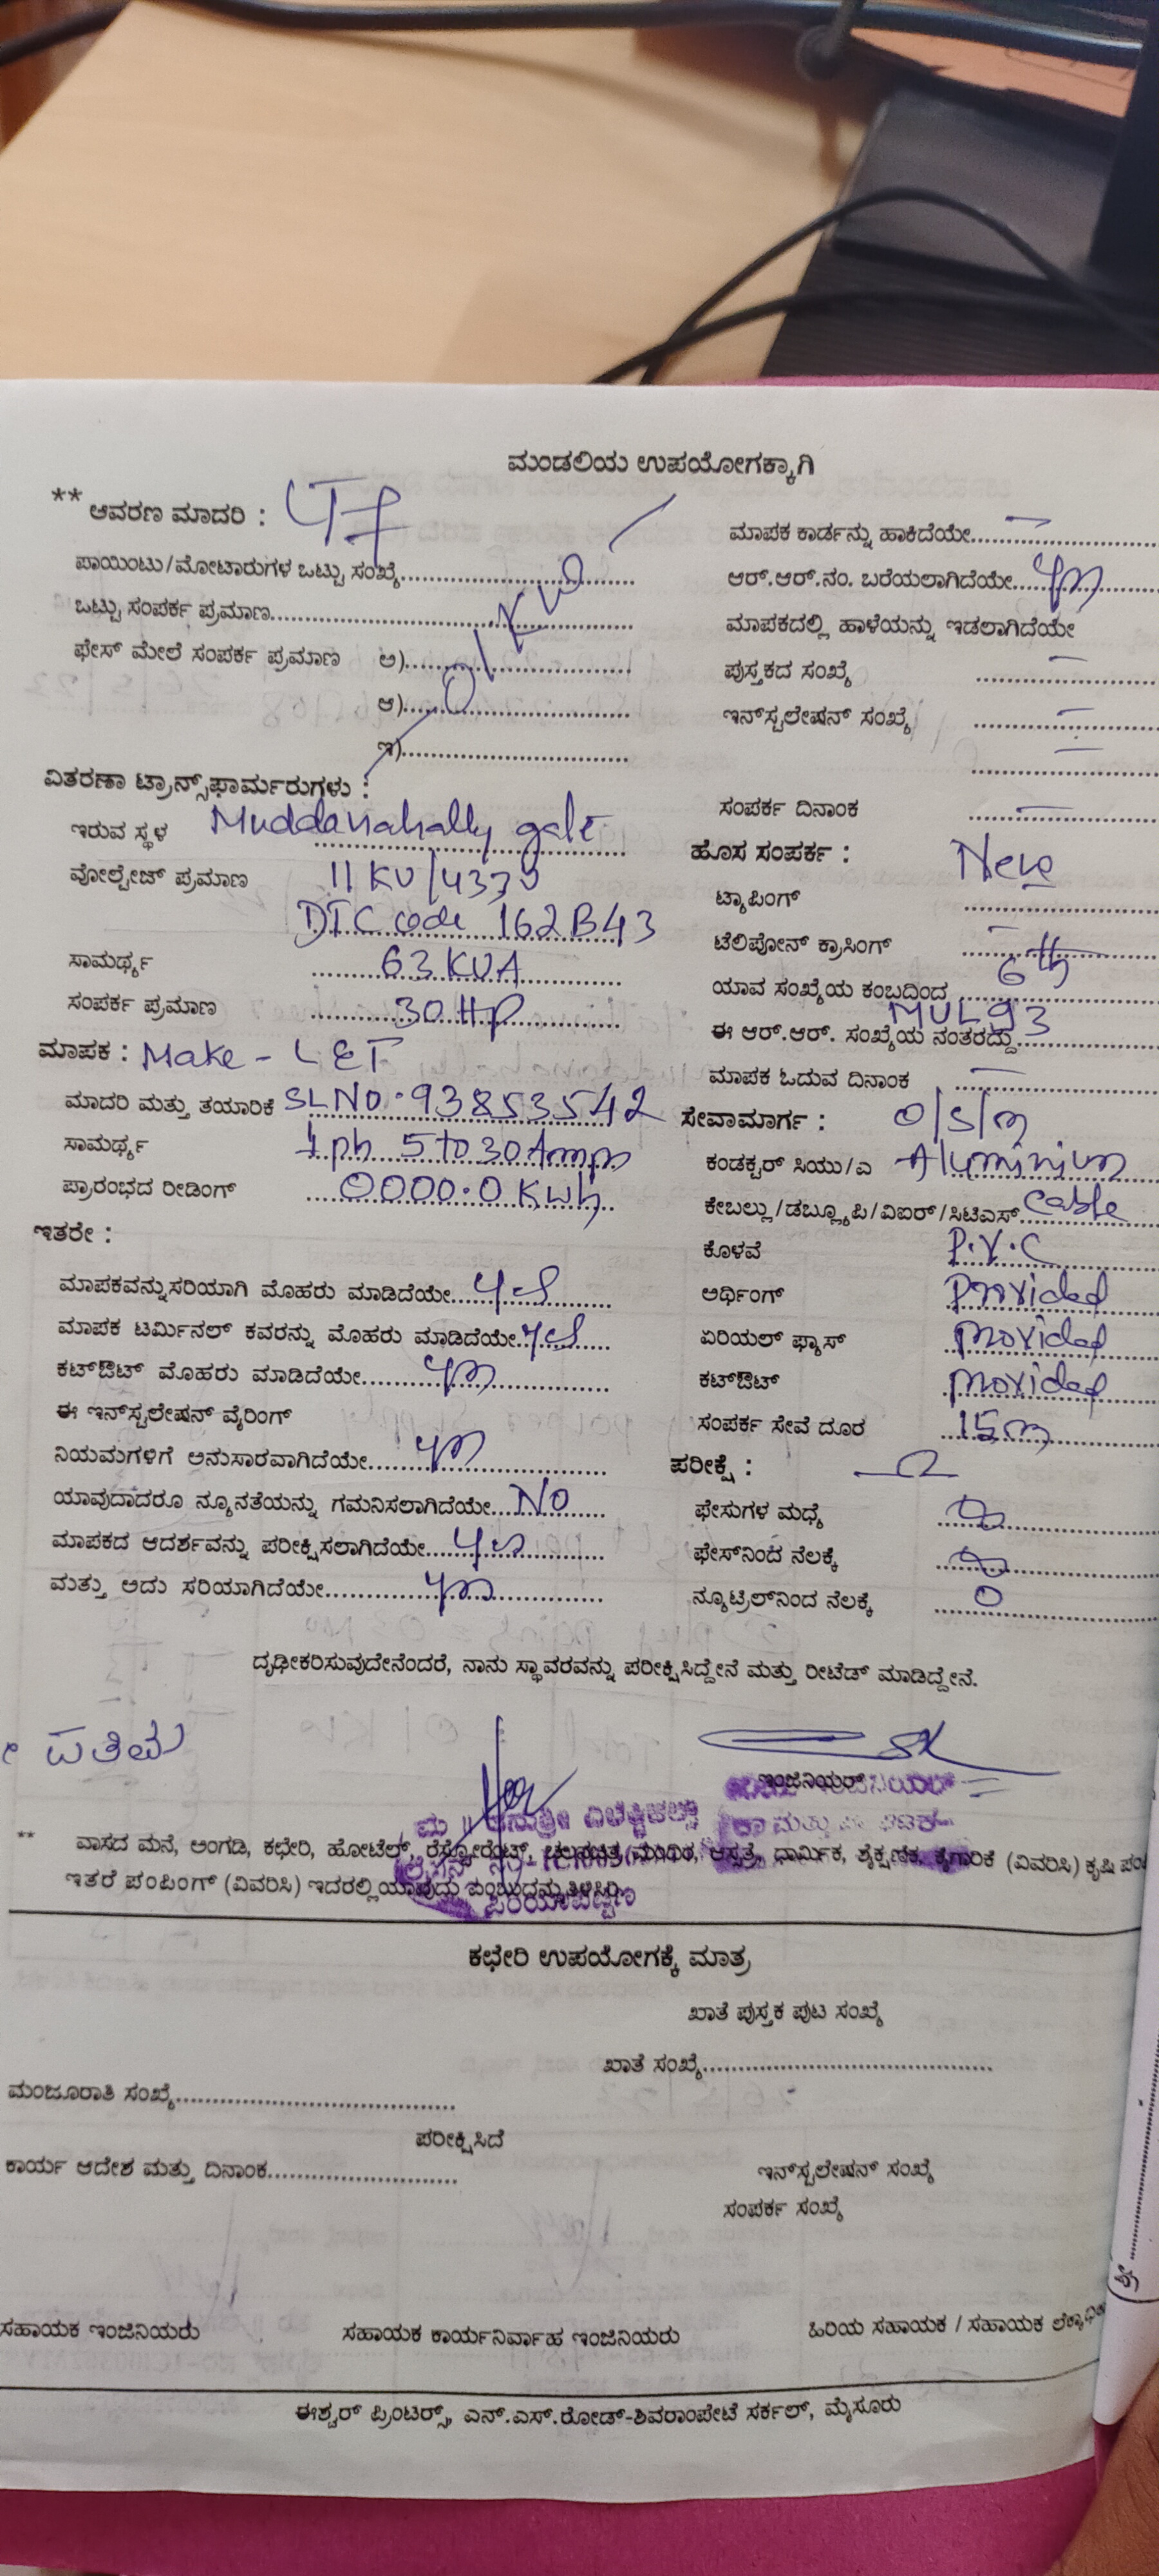 ಮಂಡಲಿಯ ಉಪಯೋಗಕ್ಕಾಗಿ
** ಆವರಣ ಮಾದರಿ :
ಪಾಯಿಂಟು/ಮೋಟಾರುಗಳ ಒಟ್ಟು ಸಂಖ್ಯೆ
ಒಟ್ಟು ಸಂಪರ್ಕ ಪ್ರಮಾಣ
01KW
ಫೇಸ್ ಮೇಲೆ ಸಂಪರ್ಕ ಪ್ರಮಾಣ ಅ)
ಆ)
ಇ)
ವಿತರಣಾ ಟ್ರಾನ್ಸ್‌ಫಾರ್ಮರುಗಳು :
ಇರುವ ಸ್ಥಳ Muddanahally gate
ವೋಲ್ಟೇಜ್ ಪ್ರಮಾಣ 11KV/433V
DTC code 162B43
ಸಾಮರ್ಥ್ಯ 63KVA
ಸಂಪರ್ಕ ಪ್ರಮಾಣ 30HP
ಮಾಪಕ : Make - L&T
ಮಾದರಿ ಮತ್ತು ತಯಾರಿಕೆ SLNO. 93853542
ಸಾಮರ್ಥ್ಯ 1ph 5 to 30 Amp
ಪ್ರಾರಂಭದ ರೀಡಿಂಗ್ 0000.0 Kwh
ಇತರೇ :
ಮಾಪಕವನ್ನು ಸರಿಯಾಗಿ ಮೊಹರು ಮಾಡಿದೆಯೇ yes
ಮಾಪಕ ಟರ್ಮಿನಲ್ ಕವರನ್ನು ಮೊಹರು ಮಾಡಿದೆಯೇ yes
ಕಟ್‌ಔಟ್ ಮೊಹರು ಮಾಡಿದೆಯೇ yes
ಈ ಇನ್‌ಸ್ಟಲೇಷನ್ ವೈರಿಂಗ್
ನಿಯಮಗಳಿಗೆ ಅನುಸಾರವಾಗಿದೆಯೇ yes
ಯಾವುದಾದರೂ ನ್ಯೂನತೆಯನ್ನು ಗಮನಿಸಲಾಗಿದೆಯೇ No
ಮಾಪಕದ ಆದರ್ಶವನ್ನು ಪರೀಕ್ಷಿಸಲಾಗಿದೆಯೇ yes
ಮತ್ತು ಅದು ಸರಿಯಾಗಿದೆಯೇ yes
ಮಾಪಕ ಕಾರ್ಡನ್ನು ಹಾಕಿದೆಯೇ —
ಆರ್.ಆರ್.ನಂ. ಬರೆಯಲಾಗಿದೆಯೇ yes
ಮಾಪಕದಲ್ಲಿ ಹಾಳೆಯನ್ನು ಇಡಲಾಗಿದೆಯೇ
ಪುಸ್ತಕದ ಸಂಖ್ಯೆ —
ಇನ್‌ಸ್ಟಲೇಷನ್ ಸಂಖ್ಯೆ —
—
ಸಂಪರ್ಕ ದಿನಾಂಕ —
ಹೊಸ ಸಂಪರ್ಕ : New
ಟ್ಯಾಪಿಂಗ್
ಟೆಲಿಪೋನ್ ಕ್ರಾಸಿಂಗ್ —
ಯಾವ ಸಂಖ್ಯೆಯ ಕಂಬದಿಂದ 6th
ಈ ಆರ್.ಆರ್. ಸಂಖ್ಯೆಯ ನಂತರದ್ದು MUL93
ಮಾಪಕ ಓದುವ ದಿನಾಂಕ —
ಸೇವಾಮಾರ್ಗ : O/S/M
ಕಂಡಕ್ಟರ್ ಸಿಯು/ಎ Aluminium
ಕೇಬಲ್ಲು/ಡಬ್ಲ್ಯೂಪಿ/ವಿಐರ್/ಸಿಟಿಎಸ್ cable
ಕೊಳವೆ P.V.C
ಅರ್ಥಿಂಗ್ Provided
ಏರಿಯಲ್ ಫ್ಯೂಸ್ Provided
ಕಟ್‌ಔಟ್ Provided
ಸಂಪರ್ಕ ಸೇವೆ ದೂರ 15m
ಪರೀಕ್ಷೆ : Ω
ಫೇಸುಗಳ ಮಧ್ಯೆ
ಫೇಸ್‌ನಿಂದ ನೆಲಕ್ಕೆ
ನ್ಯೂಟ್ರಲ್‌ನಿಂದ ನೆಲಕ್ಕೆ 0
ದೃಢೀಕರಿಸುವುದೇನೆಂದರೆ, ನಾನು ಸ್ಥಾವರವನ್ನು ಪರೀಕ್ಷಿಸಿದ್ದೇನೆ ಮತ್ತು ರೀಟೆಡ್ ಮಾಡಿದ್ದೇನೆ.
ಇಂಜಿನಿಯರ್
** ವಾಸದ ಮನೆ, ಅಂಗಡಿ, ಕಛೇರಿ, ಹೋಟೆಲ್, ರೆಸ್ಟೋರೆಂಟ್, ಚಲನಚಿತ್ರ ಮಂದಿರ, ಆಸ್ಪತ್ರೆ, ಧಾರ್ಮಿಕ, ಶೈಕ್ಷಣಿಕ, ಕೈಗಾರಿಕೆ (ವಿವರಿಸಿ) ಕೃಷಿ
ಇತರೆ ಪಂಪಿಂಗ್ (ವಿವರಿಸಿ) ಇದರಲ್ಲಿ ಯಾವುದು ಎಂಬುದನ್ನು ತಿಳಿಸಿರಿ.
ಪಿರಿಯಾಪಟ್ಟಣ
ಕಛೇರಿ ಉಪಯೋಗಕ್ಕೆ ಮಾತ್ರ
ಖಾತೆ ಪುಸ್ತಕ ಪುಟ ಸಂಖ್ಯೆ
ಖಾತೆ ಸಂಖ್ಯೆ
ಮಂಜೂರಾತಿ ಸಂಖ್ಯೆ
ಪರೀಕ್ಷಿಸಿದೆ
ಕಾರ್ಯ ಆದೇಶ ಮತ್ತು ದಿನಾಂಕ
ಇನ್‌ಸ್ಟಲೇಷನ್ ಸಂಖ್ಯೆ
ಸಂಪರ್ಕ ಸಂಖ್ಯೆ
ಸಹಾಯಕ ಇಂಜಿನಿಯರು ಸಹಾಯಕ ಕಾರ್ಯನಿರ್ವಾಹ ಇಂಜಿನಿಯರು ಹಿರಿಯ ಸಹಾಯಕ / ಸಹಾಯಕ
ಈಶ್ವರ್ ಪ್ರಿಂಟರ್ಸ್, ಎನ್.ಎಸ್.ರೋಡ್-ಶಿವರಾಂಪೇಟೆ ಸರ್ಕಲ್, ಮೈಸೂರು